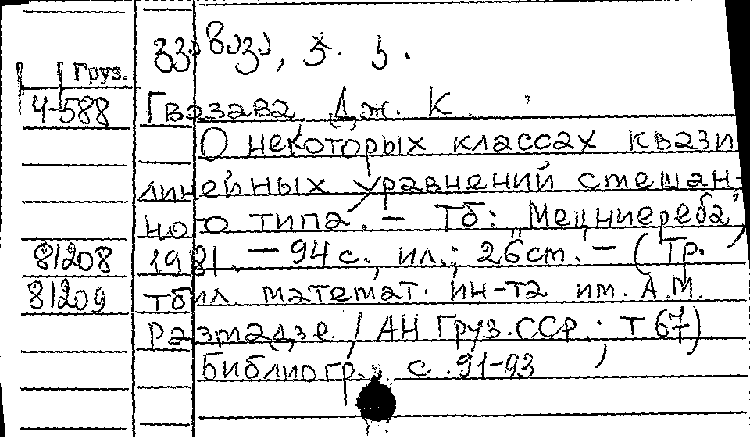 გვაზავა, ჯ. კ.
Груз.
4-588
Гвазава Дж. К.
О некоторых классах квази
линейных уравнений смешан-
ного типа. – Тб: „Мецниереба",
81208
1981. – 94 с., ил.; 26 см. – (Тр.
81209
тбил. математ. ин-та им. А.М.
Размадзе / АН Груз.ССР.; Т 67)
Библиогр.: с. 91-93